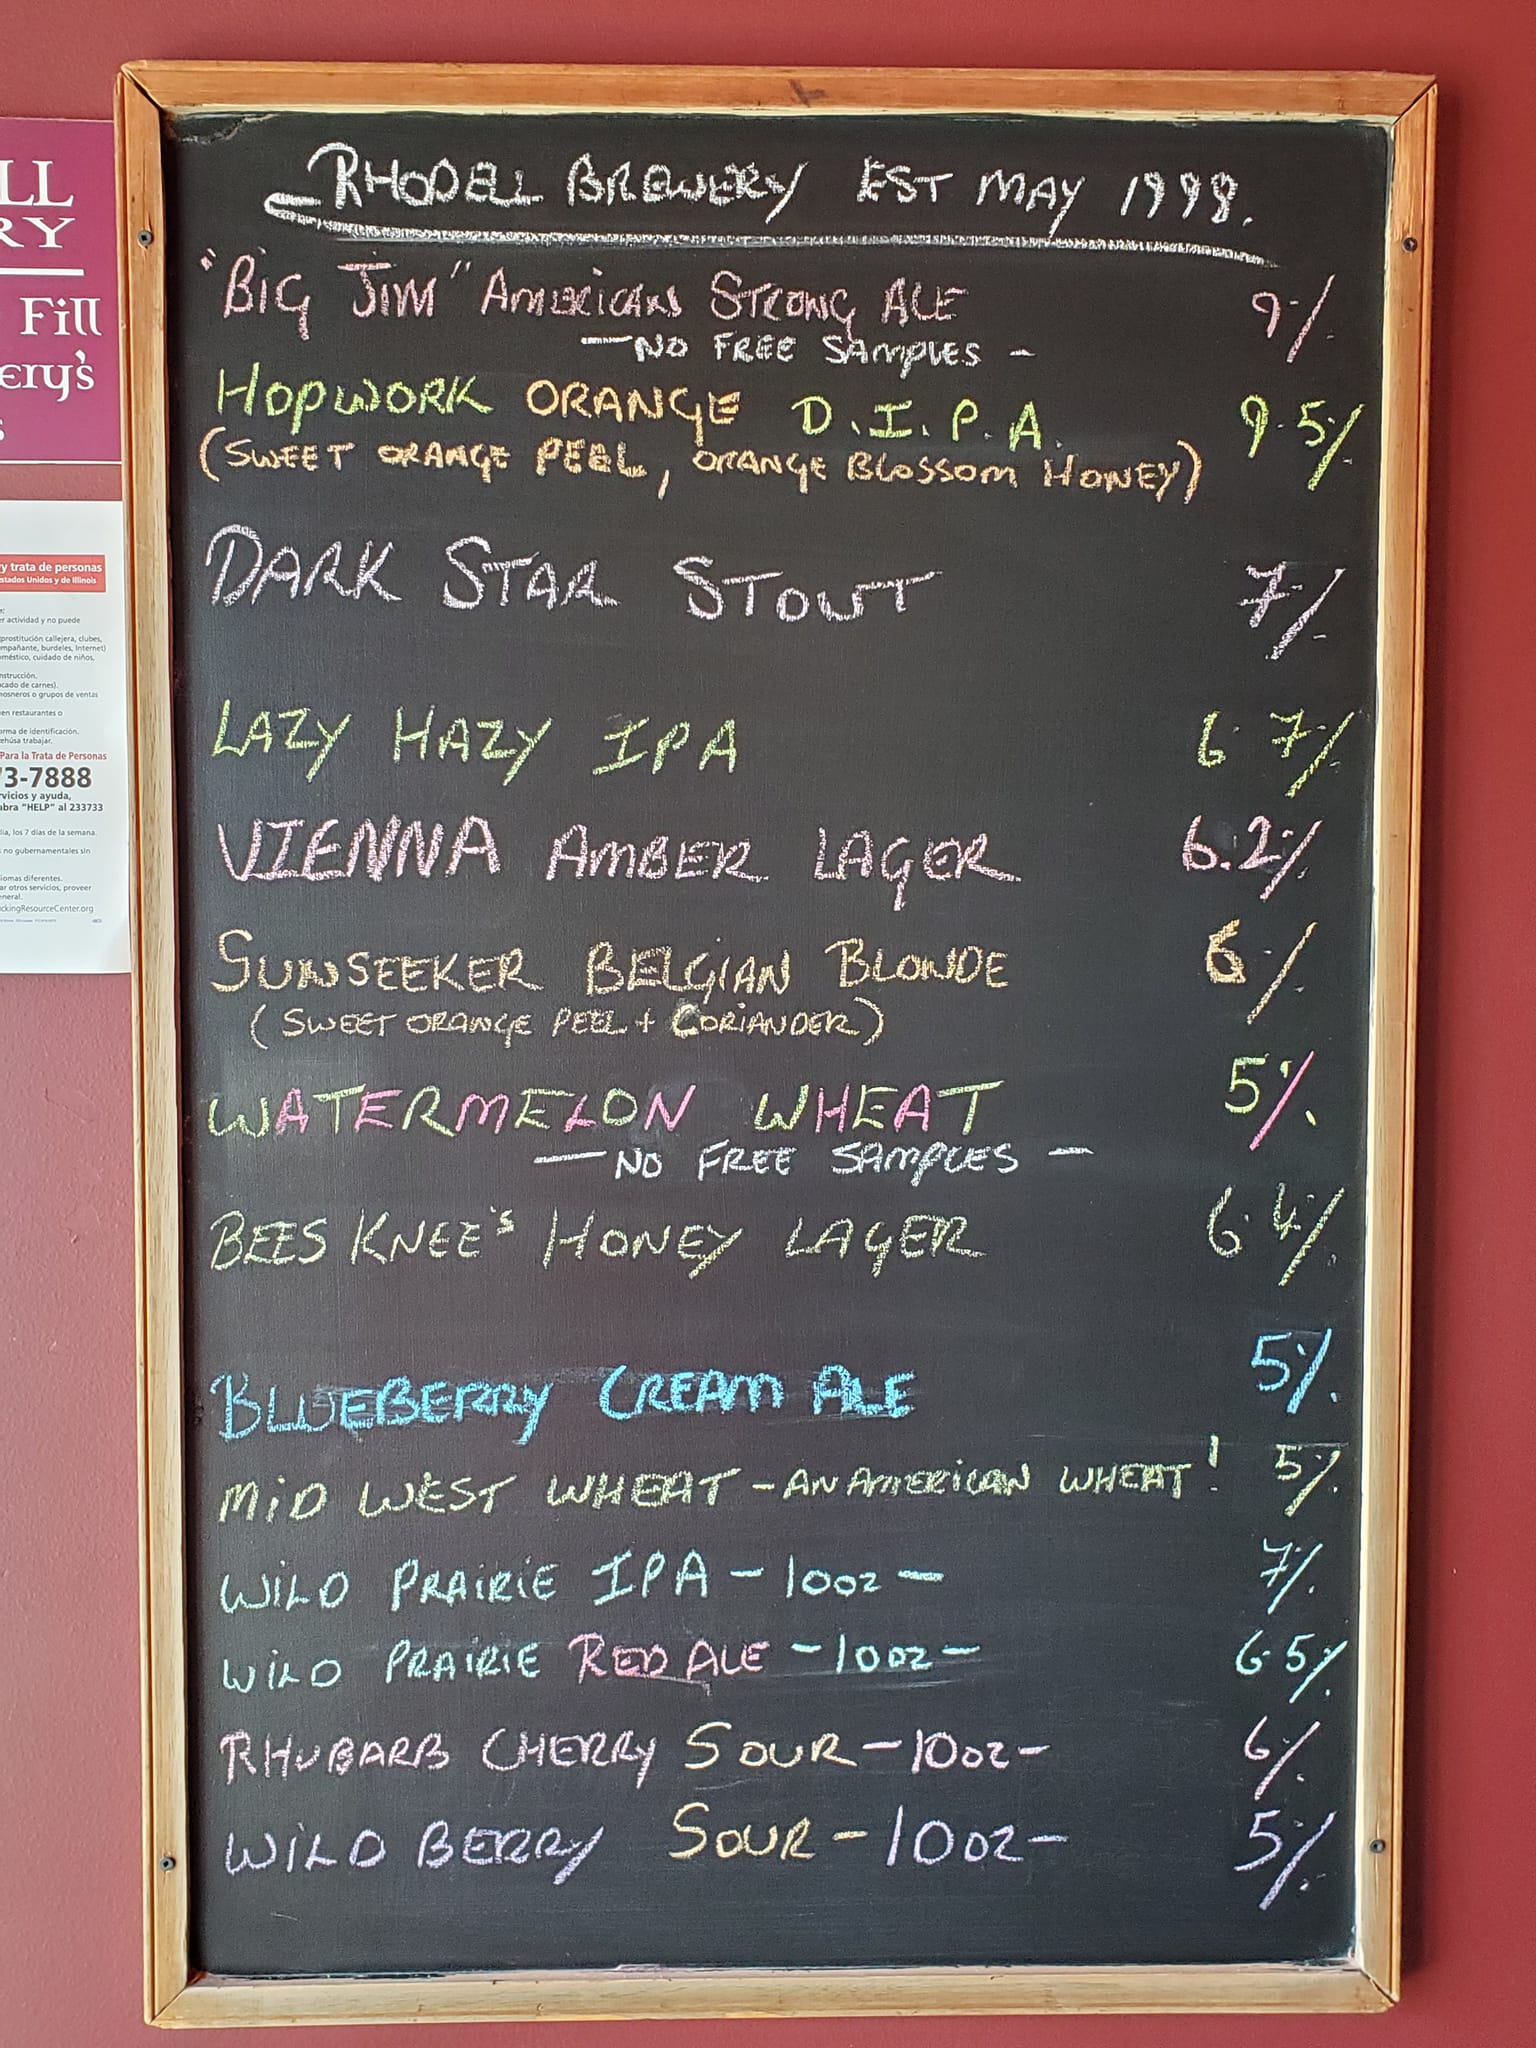 LL
RY
Fill
ery's
s
y trata de personas
stados Unidos y de Illinois
er actividad y no puede
prostitución callejera, clubes,
mpañante, burdeles, Internet)
oméstico, cuidado de niños,
nstrucción.
cado de carnes).
nosneros o grupos de ventas
en restaurantes o
orma de identificación.
ehúsa trabajar.
Para la Trata de Personas
73-7888
rvicios y ayuda,
abra "HELP" al 233733
lia, los 7 días de la semana.
s no gubernamentales sin
iomas diferentes.
ar otros servicios, proveer
eneral.
ckingResourceCenter.org
RHODELL BREWERY EST MAY 1998.
"BIG JIM" AMERICAN STRONG ALE 9%
—NO FREE SAMPLES -
HOPWORK ORANGE D.I.P.A. 9.5%
(SWEET ORANGE PEEL, ORANGE BLOSSOM HONEY)
DARK STAR STOUT 7%
LAZY HAZY IPA 6.7%
VIENNA AMBER LAGER 6.2%
SUNSEEKER BELGIAN BLONDE 6%
(SWEET ORANGE PEEL + CORIANDER)
WATERMELON WHEAT 5%
— NO FREE SAMPLES —
BEES KNEE'S HONEY LAGER 6.4%
BLUEBERRY CREAM ALE 5%
MID WEST WHEAT - AN AMERICAN WHEAT! 5%
WILD PRAIRIE IPA - 10oz - 7%
WILD PRAIRIE RED ALE - 10oz - 6.5%
RHUBARB CHERRY SOUR - 10oz - 6%
WILD BERRY SOUR - 10oz - 5%